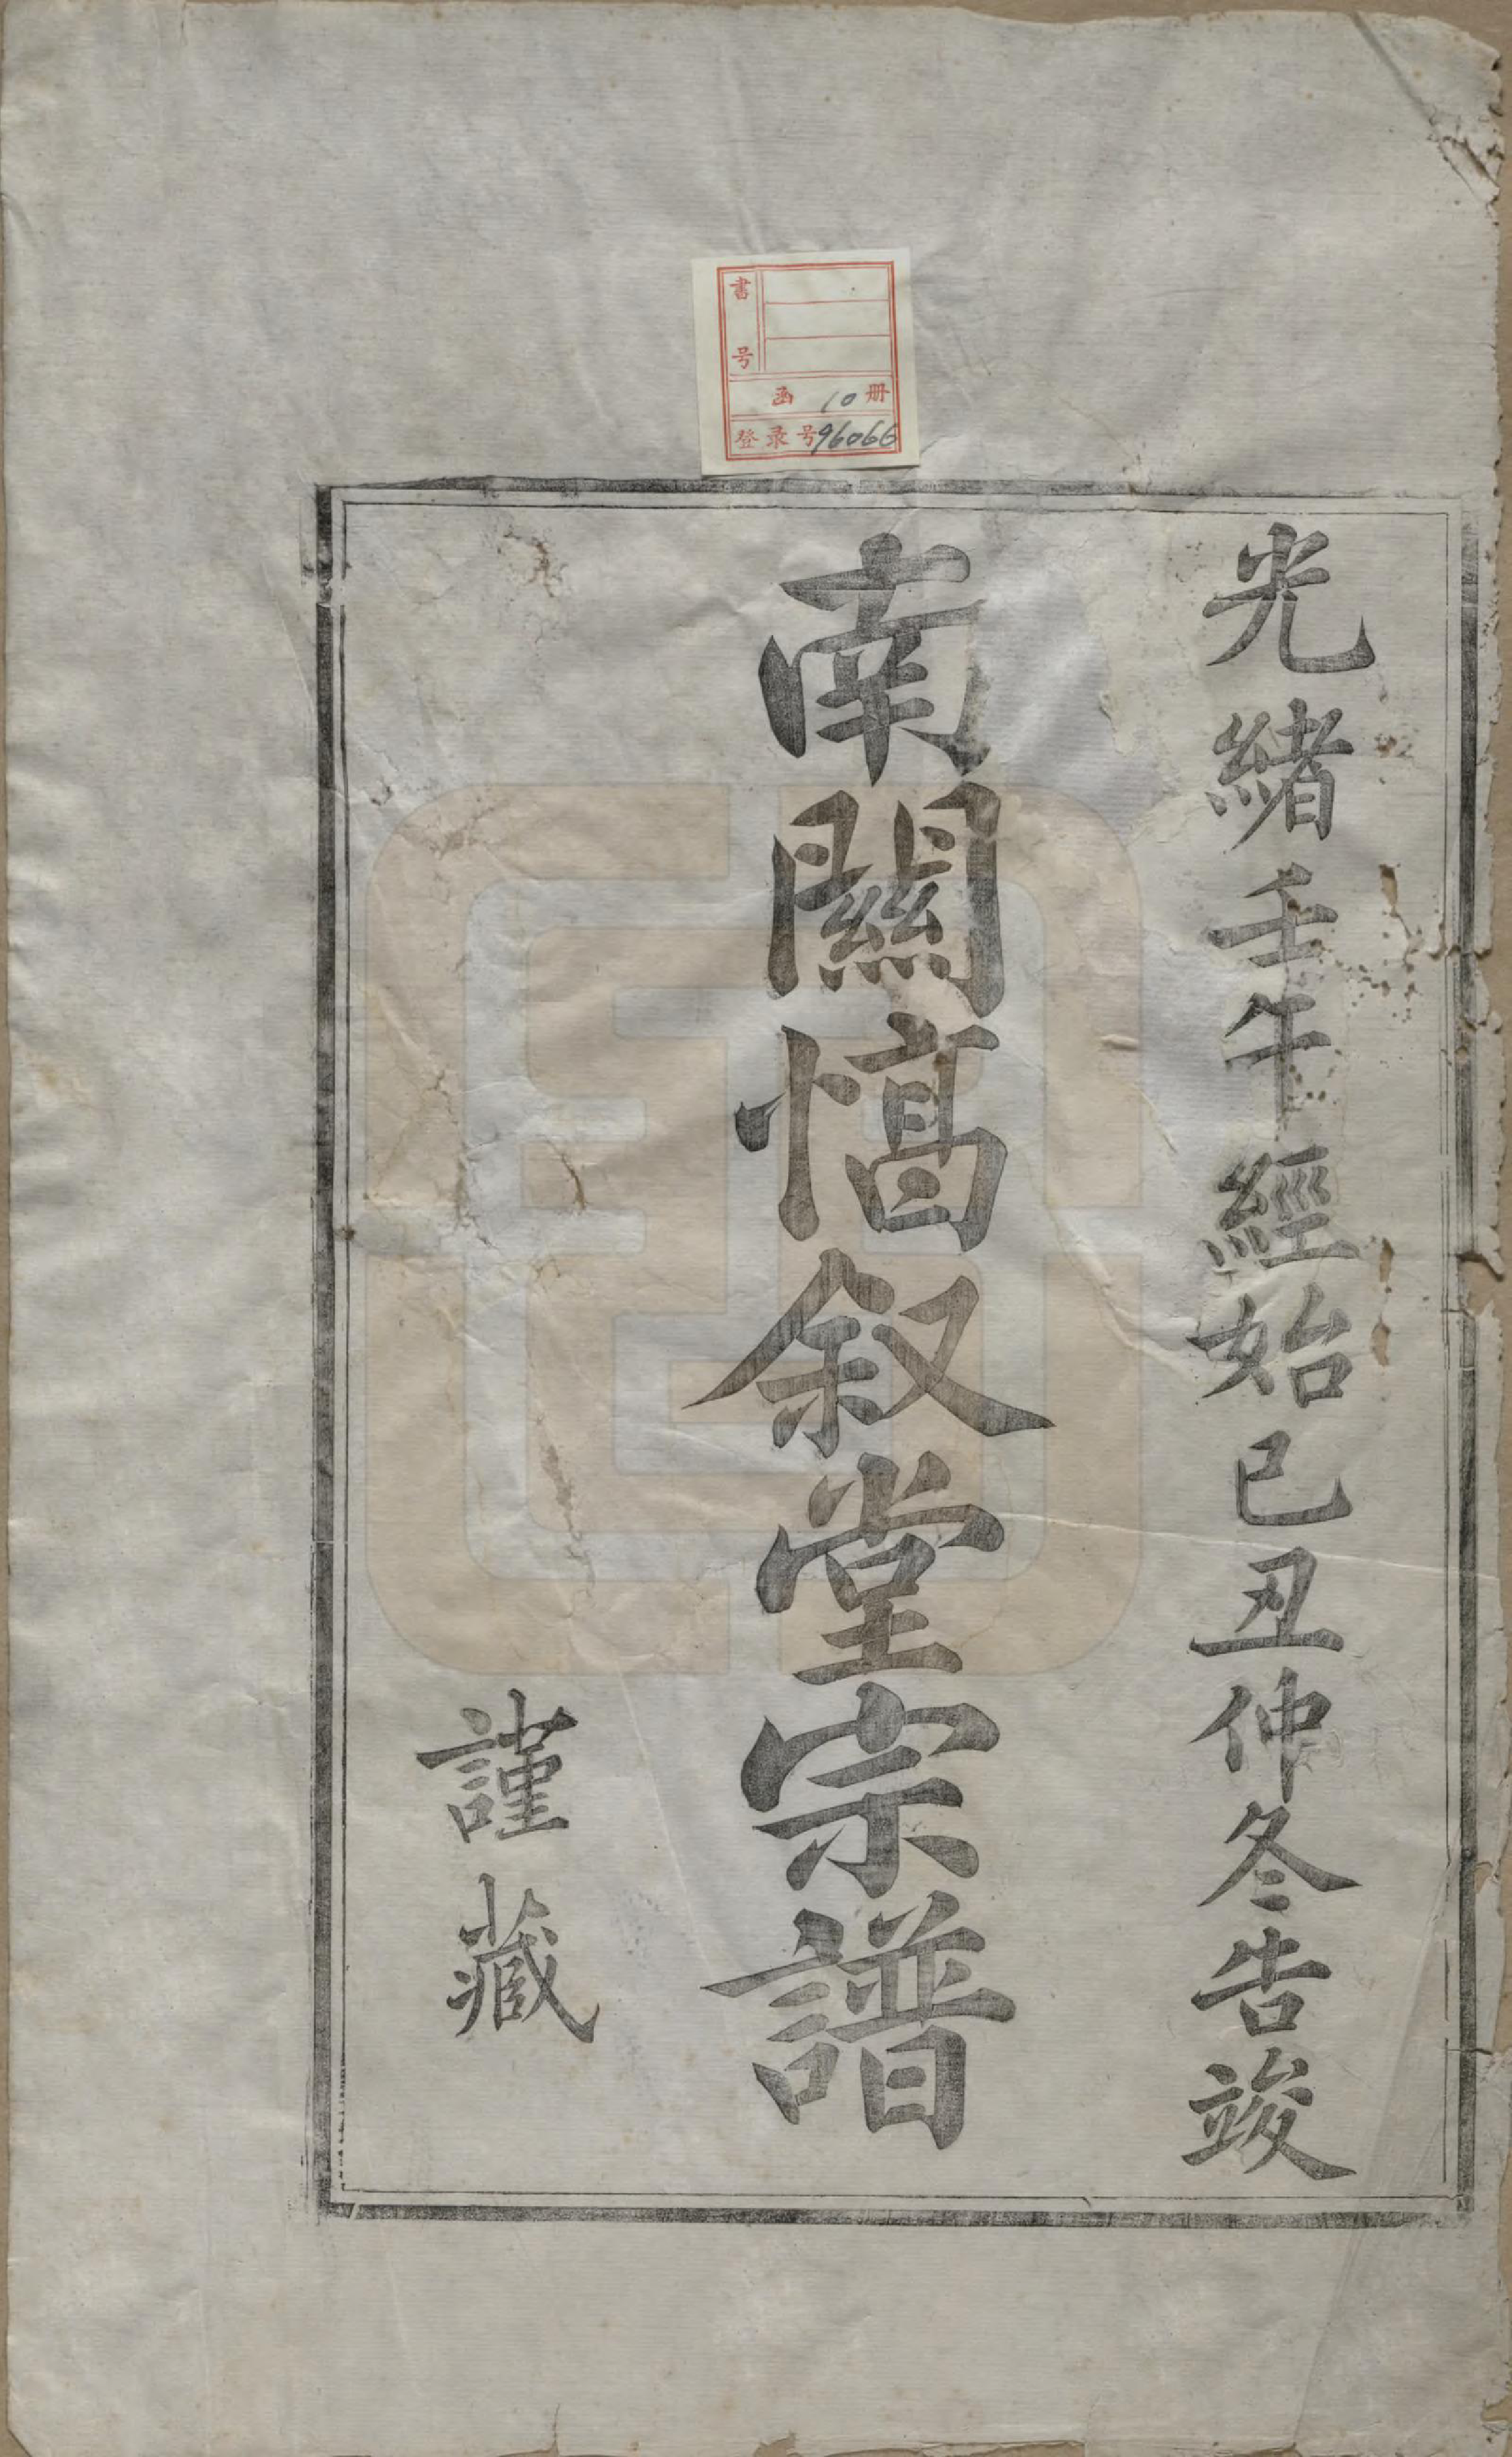 光緒壬午經始己丑仲冬告竣
南關惇叙堂宗譜
謹藏
書号
函 10 册
登录号96066